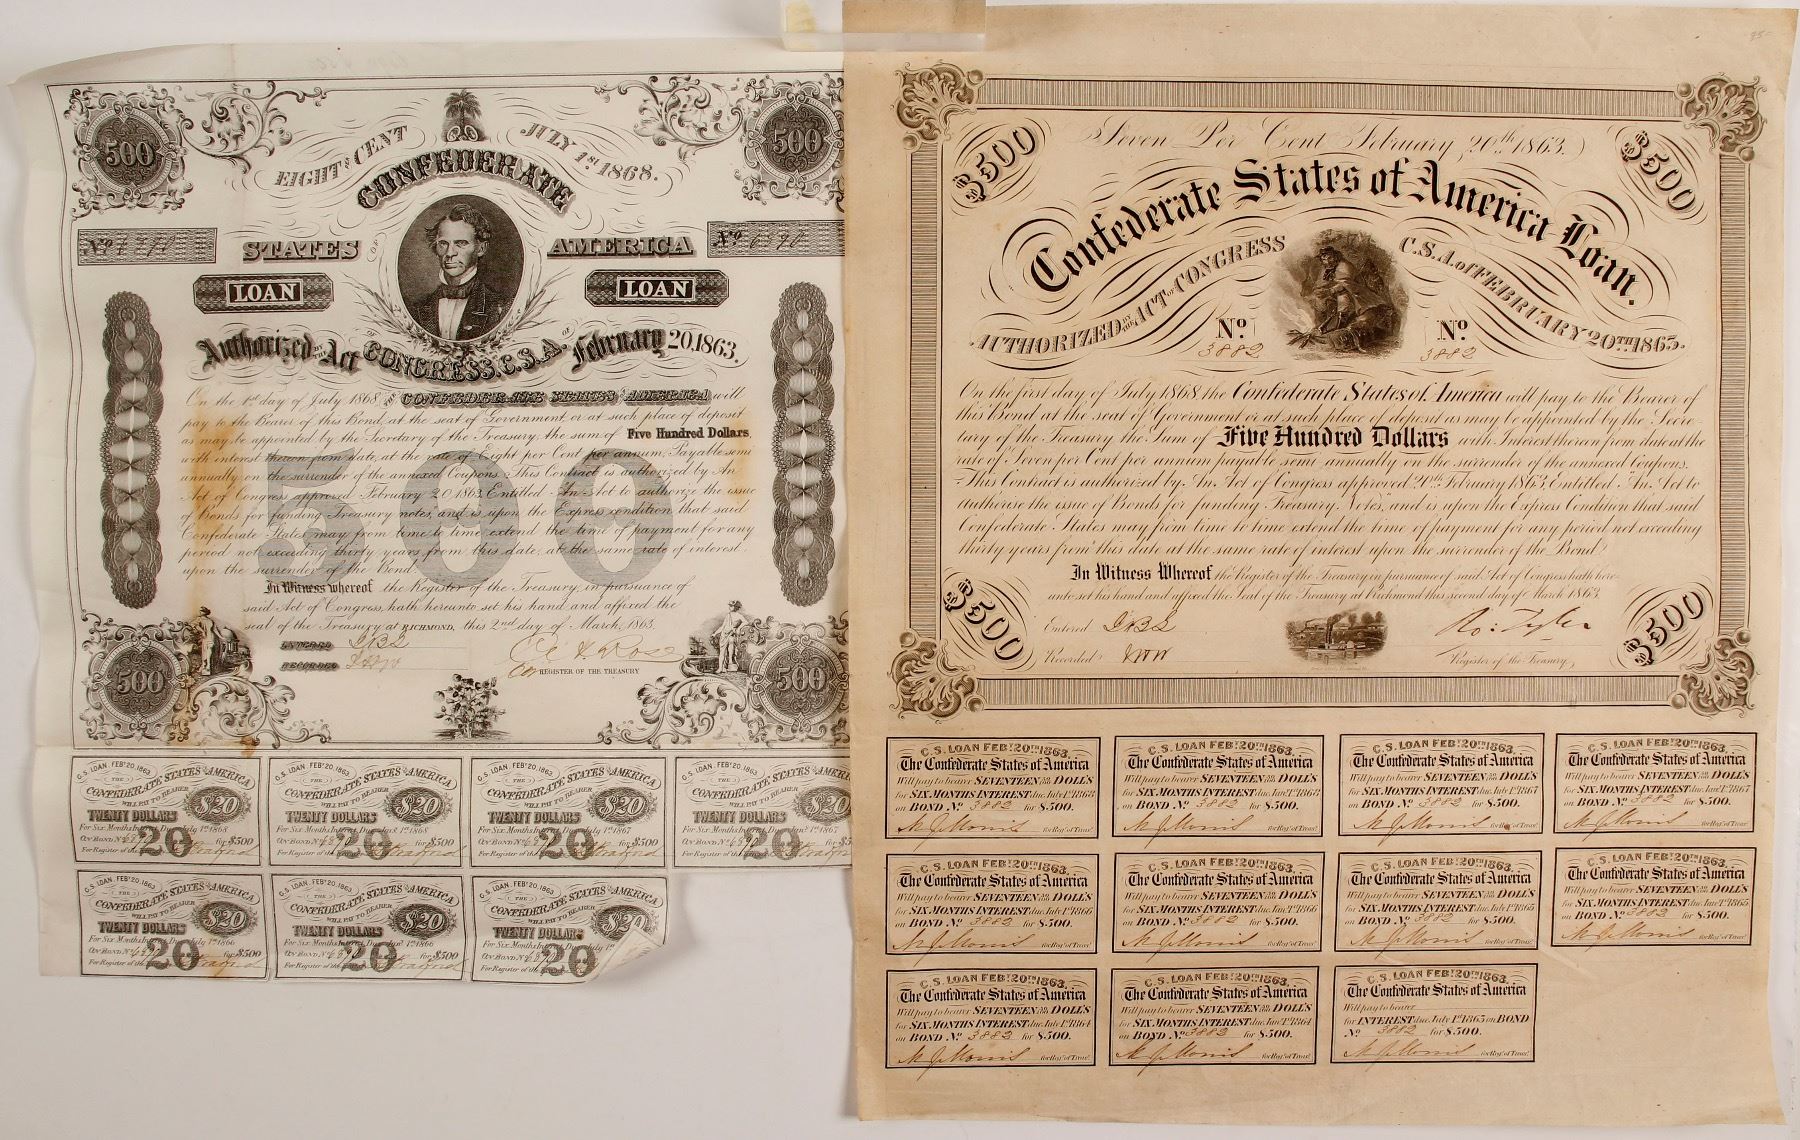 500
500
EIGHT PR CENT
JULY 1ST 1868.
CONFEDERATE
STATES OF AMERICA
Nº
Nº
LOAN
LOAN
Authorized BY THE Act OF CONGRESS, C.S.A. OF February 20, 1863.
On the 1st day of July 1868 THE CONFEDERATE STATES OF AMERICA will
pay to the Bearer of this Bond, at the seat of Government, or at such place of deposit
as may be appointed by the Secretary of the Treasury, the sum of Five Hundred Dollars,
with interest thereon from date, at the rate of Eight per Cent per annum, Payable semi
annually on the surrender of the annexed Coupons. This Contract is authorized by An
Act of Congress approved February 20 1863, Entitled "An Act to authorize the issue
of Bonds for funding Treasury notes, and is upon the Express condition that said
Confederate States may from time to time extend the time of payment for any
period not exceeding thirty years from this date, at the same rate of interest,
upon the surrender of the Bond.
500
In Witness whereof the Register of the Treasury, in pursuance of
said Act of Congress, hath hereunto set his hand and affixed the
seal of the Treasury at RICHMOND, this 2nd day of March, 1863.
ENTERED
RECORDED
REGISTER OF THE TREASURY
500
500
C.S. LOAN, FEBY 20, 1863
THE
CONFEDERATE STATES OF AMERICA
WILL PAY TO BEARER
$20
TWENTY DOLLARS
For Six Months Interest Due July 1st 1868
ON BOND Nº 6890 for $500
For Register of the
20
C.S. LOAN, FEBY 20, 1863
THE
CONFEDERATE STATES OF AMERICA
WILL PAY TO BEARER
$20
TWENTY DOLLARS
For Six Months Interest Due Jany 1st 1868
ON BOND Nº 6890 for $500
For Register of the
20
C.S. LOAN, FEBY 20, 1863
THE
CONFEDERATE STATES OF AMERICA
WILL PAY TO BEARER
$20
TWENTY DOLLARS
For Six Months Interest Due July 1st 1867
ON BOND Nº 6890 for $500
For Register of the
20
C.S. LOAN, FEBY 20, 1863
THE
CONFEDERATE STATES OF AMER
WILL PAY TO BEARER
$20
TWENTY DOLLARS
For Six Months Interest Due Jany 1st 1867
ON BOND Nº 6890 for $5
For Register of the
20
C.S. LOAN, FEBY 20, 1863
THE
CONFEDERATE STATES OF AMERICA
WILL PAY TO BEARER
$20
TWENTY DOLLARS
For Six Months Interest Due July 1st 1866
ON BOND Nº 6890 for $500
For Register of the
20
C.S. LOAN, FEBY 20, 1863
THE
CONFEDERATE STATES OF AMERICA
WILL PAY TO BEARER
$20
TWENTY DOLLARS
For Six Months Interest Due Jany 1st 1866
ON BOND Nº 6890 for $500
For Register of the
20
C.S. LOAN, FEBY 20, 1863
THE
CONFEDERATE STATES OF AMERICA
WILL PAY TO BEARER
$20
TWENTY DOLLARS
For Six Months Interest Due July 1st
ON BOND Nº 6890
For Register of the
20
$500
$500
Seven Per Cent February 20th 1863.
Confederate States of America Loan.
AUTHORIZED BY THE ACT OF CONGRESS C.S.A. of FEBRUARY 20TH 1863.
Nº
3882
Nº
3882
On the first day of July 1868 the Confederate States of America will pay to the Bearer of
this Bond at the seat of Government or at such place of deposit as may be appointed by the Secre-
tary of the Treasury the Sum of Five Hundred Dollars with Interest thereon from date at the
rate of Seven per Cent per annum payable semi-annually on the surrender of the annexed Coupons.
This Contract is authorized by An Act of Congress approved 20th February 1863, Entitled "An Act to
authorise the issue of Bonds for funding Treasury Notes," and is upon the Express Condition that said
Confederate States may from time to time extend the time of payment for any period not exceeding
thirty years from this date at the same rate of interest upon the surrender of the Bond.
In Witness Whereof the Register of the Treasury in pursuance of said Act of Congress hath here-
unto set his hand and affixed the Seal of the Treasury at Richmond this second day of March 1863.
Entered
Recorded
Ro: Tyler
Register of the Treasury
$500
$500
C.S. LOAN FEBY 20TH 1863.
The Confederate States of America
Will pay to bearer SEVENTEEN 50/100 DOLL'S
for SIX MONTHS INTEREST due July 1st 1868
on BOND Nº 3882 for $500.
M J Morris for Regr of Treasy
C.S. LOAN FEBY 20TH 1863.
The Confederate States of America
Will pay to bearer SEVENTEEN 50/100 DOLL'S
for SIX MONTHS INTEREST due Jany 1st 1868
on BOND Nº 3882 for $500.
M J Morris for Regr of Treasy
C.S. LOAN FEBY 20TH 1863.
The Confederate States of America
Will pay to bearer SEVENTEEN 50/100 DOLL'S
for SIX MONTHS INTEREST due July 1st 1867
on BOND Nº 3882 for $500.
M J Morris for Regr of Treasy
C.S. LOAN FEBY 20TH 1863.
The Confederate States of America
Will pay to bearer SEVENTEEN 50/100 DOLL'S
for SIX MONTHS INTEREST due Jany 1st 1867
on BOND Nº 3882 for $500.
M J Morris for Regr of Treasy
C.S. LOAN FEBY 20TH 1863.
The Confederate States of America
Will pay to bearer SEVENTEEN 50/100 DOLL'S
for SIX MONTHS INTEREST due July 1st 1866
on BOND Nº 3882 for $500.
M J Morris for Regr of Treasy
C.S. LOAN FEBY 20TH 1863.
The Confederate States of America
Will pay to bearer SEVENTEEN 50/100 DOLL'S
for SIX MONTHS INTEREST due Jany 1st 1866
on BOND Nº 3882 for $500.
M J Morris for Regr of Treasy
C.S. LOAN FEBY 20TH 1863.
The Confederate States of America
Will pay to bearer SEVENTEEN 50/100 DOLL'S
for SIX MONTHS INTEREST due July 1st 1865
on BOND Nº 3882 for $500.
M J Morris for Regr of Treasy
C.S. LOAN FEBY 20TH 1863.
The Confederate States of America
Will pay to bearer SEVENTEEN 50/100 DOLL'S
for SIX MONTHS INTEREST due Jany 1st 1865
on BOND Nº 3882 for $500.
M J Morris for Regr of Treasy
C.S. LOAN FEBY 20TH 1863.
The Confederate States of America
Will pay to bearer SEVENTEEN 50/100 DOLL'S
for SIX MONTHS INTEREST due July 1st 1864
on BOND Nº 3882 for $500.
M J Morris for Regr of Treasy
C.S. LOAN FEBY 20TH 1863.
The Confederate States of America
Will pay to bearer SEVENTEEN 50/100 DOLL'S
for SIX MONTHS INTEREST due Jany 1st 1864
on BOND Nº 3882 for $500.
M J Morris for Regr of Treasy
C.S. LOAN FEBY 20TH 1863.
The Confederate States of America
Will pay to bearer
for INTEREST due July 1st 1863 on BOND
Nº 3882 for $500.
M J Morris for Regr of Treasy